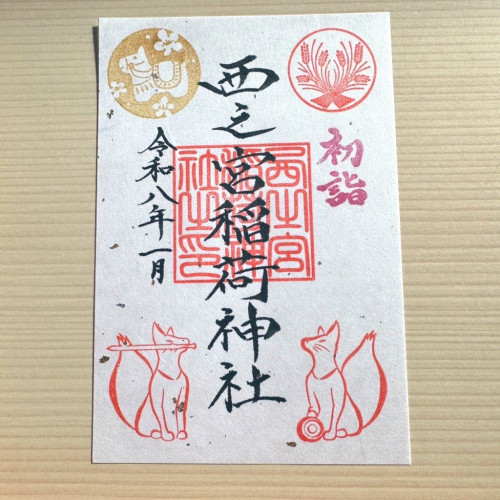 初詣
西之宮稲荷神社
令和八年一月
西之宮
稲荷神
社之印